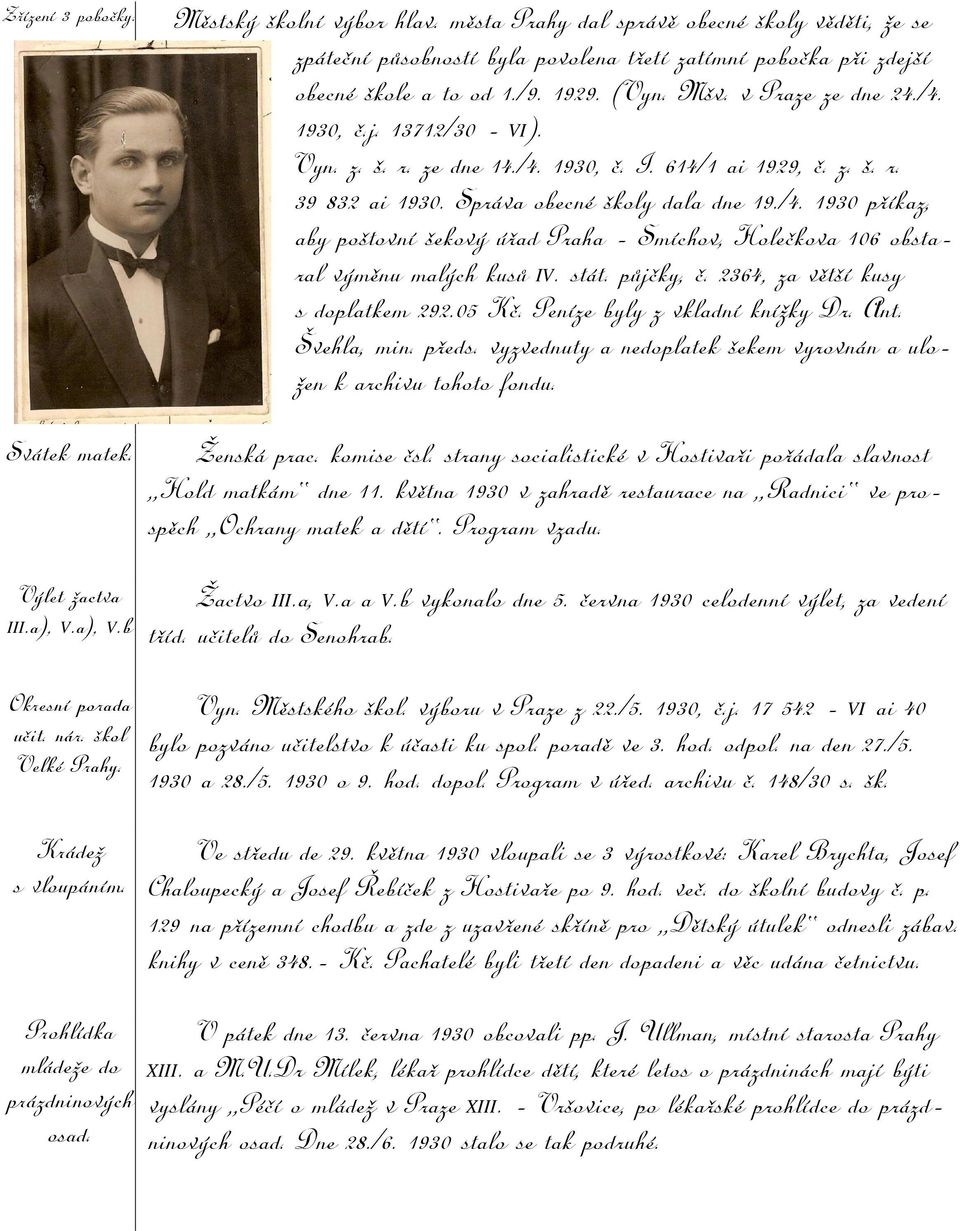 Zřízení 3 pobočky.
Městský školní výbor hlav. města Prahy dal správě obecné školy věděti, že se
zpáteční působností byla povolena třetí zatímní pobočka při zdejší
obecné škole a to od 1./9. 1929. (Vyn. Mšv. v Praze ze dne 24./4.
1930, č.j. 13712/30 - VI).
Vyn. z. š. r. ze dne 14./4. 1930, č. I. 614/1 ai 1929, č. z. š. r.
39 832 ai 1930. Správa obecné školy dala dne 19./4. 1930 příkaz,
aby poštovní šekový úřad Praha - Smíchov, Holečkova 106 obsta-
ral výměnu malých kusů IV. stát. půjčky, č. 2364, za větší kusy
s doplatkem 292.05 Kč. Peníze byly z vkladní knížky Dr. Ant.
Švehla, min. předs. vyzvednuty a nedoplatek šekem vyrovnán a ulo-
žen k archivu tohoto fondu.
Svátek matek.
Ženská prac. komise čsl. strany socialistické v Hostivaři pořádala slavnost
„Hold matkám“ dne 11. května 1930 v zahradě restaurace na „Radnici“ ve pro-
spěch „Ochrany matek a dětí“. Program vzadu.
Výlet žactva
III.a), V.a), V.b
Žactvo III.a, V.a a V.b vykonalo dne 5. června 1930 celodenní výlet, za vedení
tříd. učitelů do Senohrab.
Okresní porada
učit. nár. škol
Velké Prahy.
Vyn. Městského škol. výboru v Praze z 22./5. 1930, č.j. 17 542 - VI ai 40
bylo pozváno učitelstvo k účasti ku spol. poradě ve 3. hod. odpol. na den 27./5.
1930 a 28./5. 1930 o 9. hod. dopol. Program v úřed. archivu č. 148/30 s. šk.
Krádež
s vloupáním.
Ve středu de 29. května 1930 vloupali se 3 výrostkové: Karel Brychta, Josef
Chaloupecký a Josef Řebíček z Hostivaře po 9. hod. več. do školní budovy č. p.
129 na přízemní chodbu a zde z uzavřené skříně pro „Dětský útulek“ odnesli zábav.
knihy v ceně 348.- Kč. Pachatelé byli třetí den dopadeni a věc udána četnictvu.
Prohlídka
mládeže do
prázdninových
osad.
V pátek dne 13. června 1930 obcovali pp. J. Ullman, místní starosta Prahy
XIII. a M.U.Dr Mílek, lékař prohlídce dětí, které letos o prázdninách mají býti
vyslány „Péčí o mládež v Praze XIII. - Vršovice, po lékařské prohlídce do prázd-
ninových osad. Dne 28./6. 1930 stalo se tak podruhé.